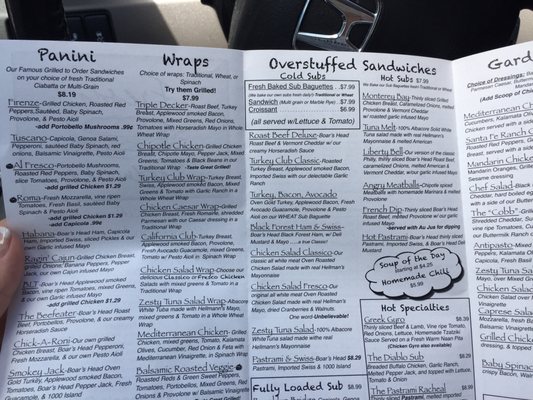 Panini
Our Famous Grilled to Order Sandwiches
on your choice of fresh Traditional
Ciabatta or Multi-Grain
$8.19
Firenze-Grilled Chicken, Roasted Red
Peppers, Sautéed, Baby Spinach,
Provolone, & Pesto Aioli
-add Portobello Mushrooms .99¢
Tuscano-Capicola, Genoa Salami,
Pepperoni, sautéed Baby Spinach, red
onions, Balsamic Vinaigrette, Pesto Aioli
Al Fresco-Portobello Mushrooms,
Roasted Red Peppers, Baby Spinach,
slice Tomatoes, Provolone, & Pesto Aioli
-add grilled Chicken $1.29
Roma-Fresh Mozzarella, vine ripen
Tomatoes, fresh Basil, sautéed Baby
Spinach & Pesto Aioli
-add grilled Chicken $1.29
-add Capicola .99¢
Habana-Boar's Head Ham, Capicola
Pastrami, Imported Swiss, sliced Pickles & our
own Garlic infused Mayo
Ragin' Cajun-Grilled Chicken Breast,
Onions Banana Peppers, Pepper Jack
& our own Cajun infused Mayo
BLT-Boar's Head Applewood smoked
bacon, vine ripen Tomatoes, mixed Greens,
& our own Garlic infused Mayo
-add grilled Chicken $1.29
The Beefeater-Boar's Head Roast
Beef, Portobello, Provolone, & our creamy
Horseradish Sauce
Chick-A-Roni-Our own grilled
Chicken Breast, Boar's Head Pepperoni,
Fresh Mozzarella, & our own Pesto Aioli
Smokey Jack-Boar's Head Oven
Gold Turkey, Applewood smoked Bacon,
Tomatoes, Boar's Head Pepper Jack, Fresh
Guacamole, & 1000 Island
Wraps
Choice of wraps: Traditional, Wheat, or
Spinach
Try them Grilled!
$7.99
Triple Decker-Roast Beef, Turkey
Breast, Applewood smoked Bacon,
Provolone, Mixed Greens, Red Onions,
Tomatoes with Horseradish Mayo in Whole
Wheat Wrap
Chipotle Chicken-Grilled Chicken
Breast, Chipotle Mayo, Pepper Jack, Mixed
Greens, Tomatoes, and Black Beans in a
Traditional Wrap -Taste Great Grilled!
Turkey Club Wrap-Turkey Breast,
Applewood smoked Bacon, Swiss, Mixed
Greens & Tomato with Garlic Ranch in a
Wheat Wrap
Chicken Caesar Wrap-Grilled
Chicken Breast, Fresh Romaine, shredded
Parmesan with our Caesar dressing in a
Traditional Wrap
California Club-Turkey Breast,
Applewood smoked Bacon, Provolone,
Fresh Avocado Guacamole, mixed Greens,
Tomato w/ Pesto Aioli in Spinach Wrap
Chicken Salad Wrap-Choose our
delicious Classico or Fresco Chicken
Salads with mixed Greens & Tomato in a
Traditional Wrap
Zesty Tuna Salad Wrap-Albacore
White Tuna made with Hellman's Mayo,
mixed Greens & Tomato in a Traditional
Wrap
Mediterranean Chicken-Grilled
Chicken, mixed greens, Tomato, Kalamata
Olives, Cucumber, Red Onion & Feta with
Mediterranean Vinaigrette, in Spinach Wrap
Balsamic Roasted Veggie-
Roasted Red & Green Sweet Peppers,
Tomatoes, Portobellos, Mixed Greens, Red
Overstuffed Sandwiches
Cold Subs
Fresh Baked Sub Baguettes ..$7.99
(We bake our own subs fresh daily) Traditional or Wheat
Sandwich (Multi grain or Marble Rye).. $7.99
Croissant $6.99
(all served w/Lettuce & Tomato)
Roast Beef Deluxe-Boar's Head
Roast Beef & Vermont Cheddar w/ our
creamy Horseradish Sauce
Turkey Club Classic-Roasted
Turkey Breast, Applewood smoked Bacon,
imported Swiss with our delectable Garlic
Ranch
Turkey, Bacon, Avocado
Oven Gold Turkey, Applewood Bacon, Fresh
Avocado Guacamole, Provolone & Pesto
Aioli on our WHEAT Sub Baguette
Black Forest Ham & Swiss-
Boar's Head Black Forest Ham, w/ Deli
Mustard & Mayo ...a true Classic!
Chicken Salad Classico-Our
classic all white Oven Roasted
Chicken Salad made with real Hellman's
Mayonnaise
Chicken Salad Fresco-Our
original all white meat Oven Roasted
Chicken Salad made with real Hellman's
Mayo, dried Cranberries & Walnuts
One word-Unbelievable!
Zesty Tuna Salad-100% Albacore
White Tuna Salad made with real
Hellman's Mayonnaise
Pastrami & Swiss-Boar's Head $8.29
Pastrami, Imported Swiss & 1000 Island
Fully Loaded Sub $8.99
$7.99
Hot Subs
We Bake our Sub Baguettes fresh Traditional or Wheat
Monterey Bay-Thinly sliced Grilled
Chicken Breast, Caramelized Onions, melted
Provolone or Vermont Cheddar
w/ roasted garlic infused Mayo
Tuna Melt-100% Albacore Solid White
Tuna salad made with real Hellman's
Mayonnaise & melted American
Liberty Bell-Our version of the classic
Philly, thinly sliced Boar's Head Roast Beef,
caramelized Onions, melted American &
Vermont Cheddar, w/our garlic infused Mayo
Angry Meatballs-Properly sauced
Meatballs with homemade Marinara & melted
Provolone
French Dip-Thinly sliced Boar's Head
Roast Beef, melted Provolone w/ our roasted
garlic infused Mayo
-served with Au Jus for dipping
Hot Pastrami-Boar's Head Deli
Pastrami, Imported Swiss, & Boar's Head Deli
Mustard
Soup of the Day
starting at $4.25
Homemade Chili
$5.99
Hot Specialties
Greek Gyro $8.39
Thinly sliced Beef & Lamb, Vine ripe Tomato,
Red Onions, Lettuce, Homemade Tzatziki
Sauce Served on a Fresh Warm Naan Pita
(Chicken Gyro also available!)
The Diablo Sub $8.39
Breaded Buffalo Chicken, Garlic Ranch,
Melted Pepper Jack, and topped with Lettuce,
Tomato & Onion
The Pastrami Rachel $8.79
Gard
Choice of Dressings:
Parmesan Caesar,
(Add Scoop of
Mediterranean
Greens, Kalamata
Onions, Cucumber
Chicken served with
Santa Fe Ranch
Roasted Red Peppers,
Greens, served with
Mandarin Chicken
Mandarin Oranges,
Chef Salad-Black
Cheddar, hard boiled
with a side of our
The "Cobb"-
Shredded Cheddar,
Tomatoes, Red Onions,
our Buttermilk Ranch
Antipasto-Mixed
Pastrami, Imported
Salami, Kalamata
Chicken Salad
Mixed Greens,
Caprese Salad
Mozzarella, fresh
Balsamic Vinaigrette
Grilled Chicken
dressing, & topped
Baby Spinach